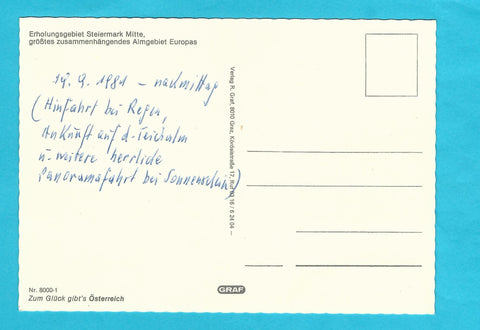 Erholungsgebiet Steiermark Mitte,
größtes zusammenhängendes Almgebiet Europas
14.9.1981 - nachmittag
(Hinfahrt bei Regen,
Ankunft auf d. Teichalm
u. weitere herrliche
Panoramafahrt bei Sonnenschein)
Verlag R. Graf, 8010 Graz, Körösistraße 17, Ruf 03 16 / 6 24 04
Nr. 8000-1
Zum Glück gibt's Österreich
GRAF